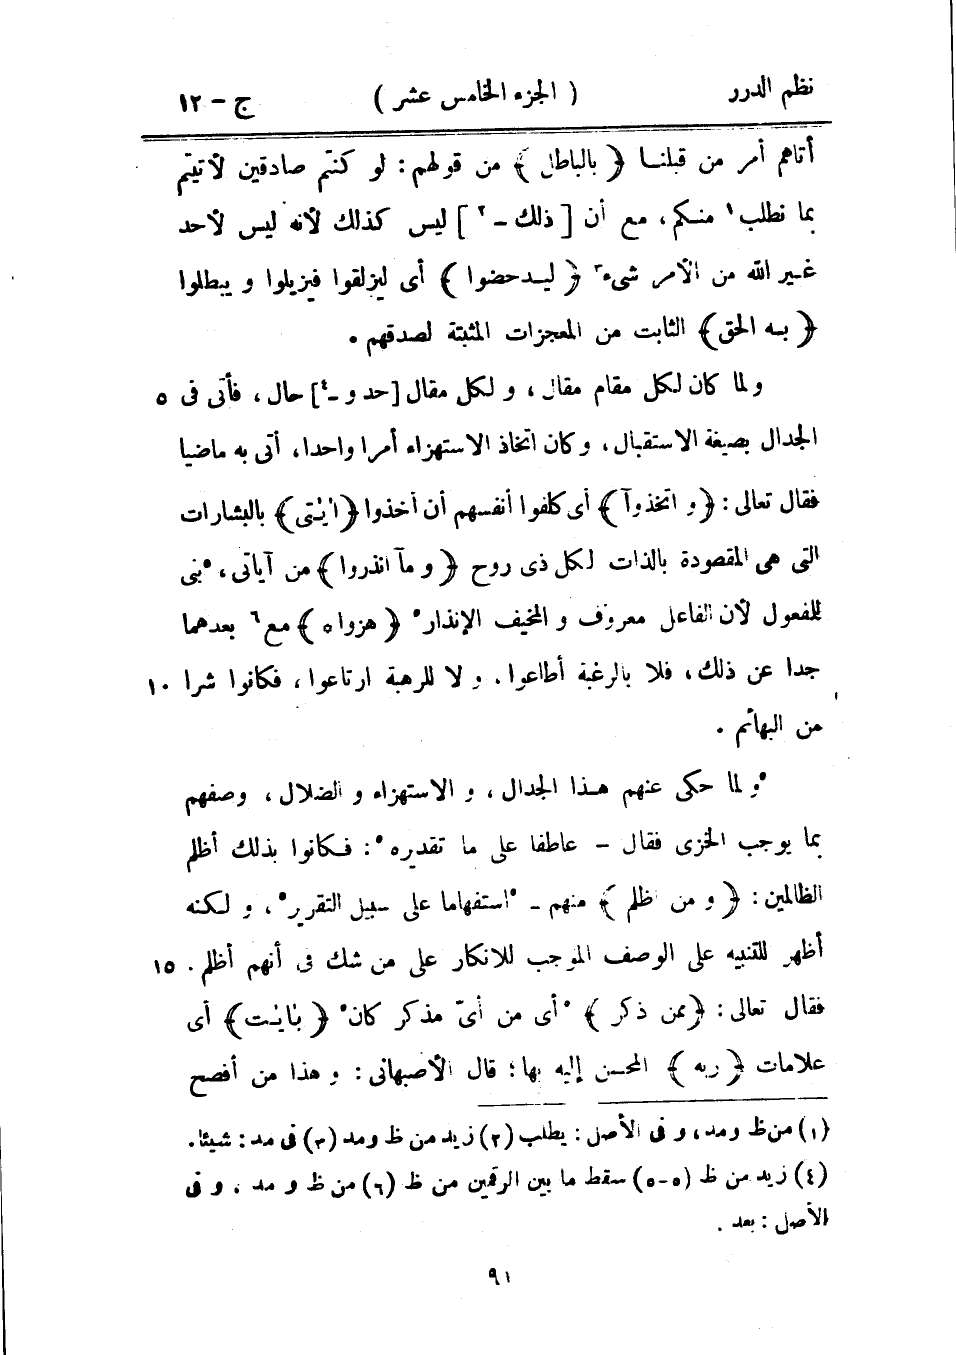 نظم الدرر ( الجزء الخامس عشر ) ج - ١٢
أتاهم أمر من قبلنا ﴿ بالباطل ﴾ من قولهم : لو كنتم صادقين لأتيتم
بما نطلب١ منكم، مع أن [ ذلك -٢ ] ليس كذلك لأنه ليس لأحد
غير الله من الأمر شيء٣ ﴿ ليدحضوا ﴾ أى ليزلقوا فيزيلوا و يبطلوا
﴿ به الحق ﴾ الثابت من المعجزات المثبتة لصدقهم .
ولما كان لكل مقام مقال ، و لكل مقال [حد و -٤] حال ، فأتى فى ٥
الجدال بصيغة الاستقبال ، وكان اتخاذ الاستهزاء أمرا واحدا، أتى به ماضيا
فقال تعالى : ﴿ و اتخذوآ ﴾ أى كلفوا أنفسهم أن أخذوا ﴿ اٰيٰتى ﴾ بالبشارات
التى هى المقصودة بالذات لكل ذى روح ﴿ و مآ انذروا ﴾ من آياتى، ٥بنى
للفعول لأن الفاعل معروف و المخيف الإنذار٥ ﴿ هزواه ﴾ مع٦ بعدهما
جدا عن ذلك، فلا بالرغبة أطاعوا، و لا للرهبة ارتاعوا ، فكانوا شرا ١٠
من البهائم .
٥و لما حكى عنهم هذا الجدال ، و الاستهزاء و الضلال ، وصفهم
بما يوجب الخزى فقال - عاطفا على ما تقديره٥: فكانوا بذلك أظلم
الظالمين : ﴿ و من اظلم ﴾ منهم - ٥استفهاما على سبيل التقرير٥، و لكنه
أظهر للتنبيه على الوصف الموجب للانكار على من شك فى أنهم أظلم . ١٥
فقال تعالى : ﴿ ممن ذكر ﴾ ٥أى من أىّ مذكر كان٥ ﴿ بٰايٰت ﴾ أى
علامات ﴿ ربه ﴾ المحسن إليه بها ؛ قال الأصبهانى : و هذا من أفصح
(١) من ظ ومد ، و فى الأصل : يطلب (٢) زيد من ظ ومد (٣) فى مد : شيئا.
(٤) زيد من ظ (٥-٥) سقط ما بين الرقمين من ظ (٦) من ظ و مد ، و فى
الأصل : بعد .
٩١